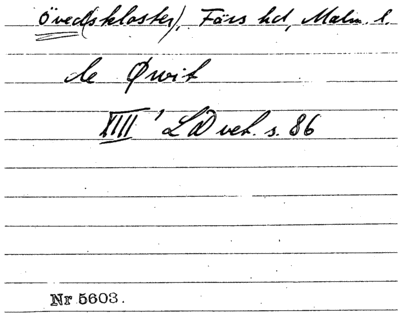 Öved(skloster), Färs hd, Malm. l.
de Ørvit
XIII' LDvet. s. 86
Nr 5603.